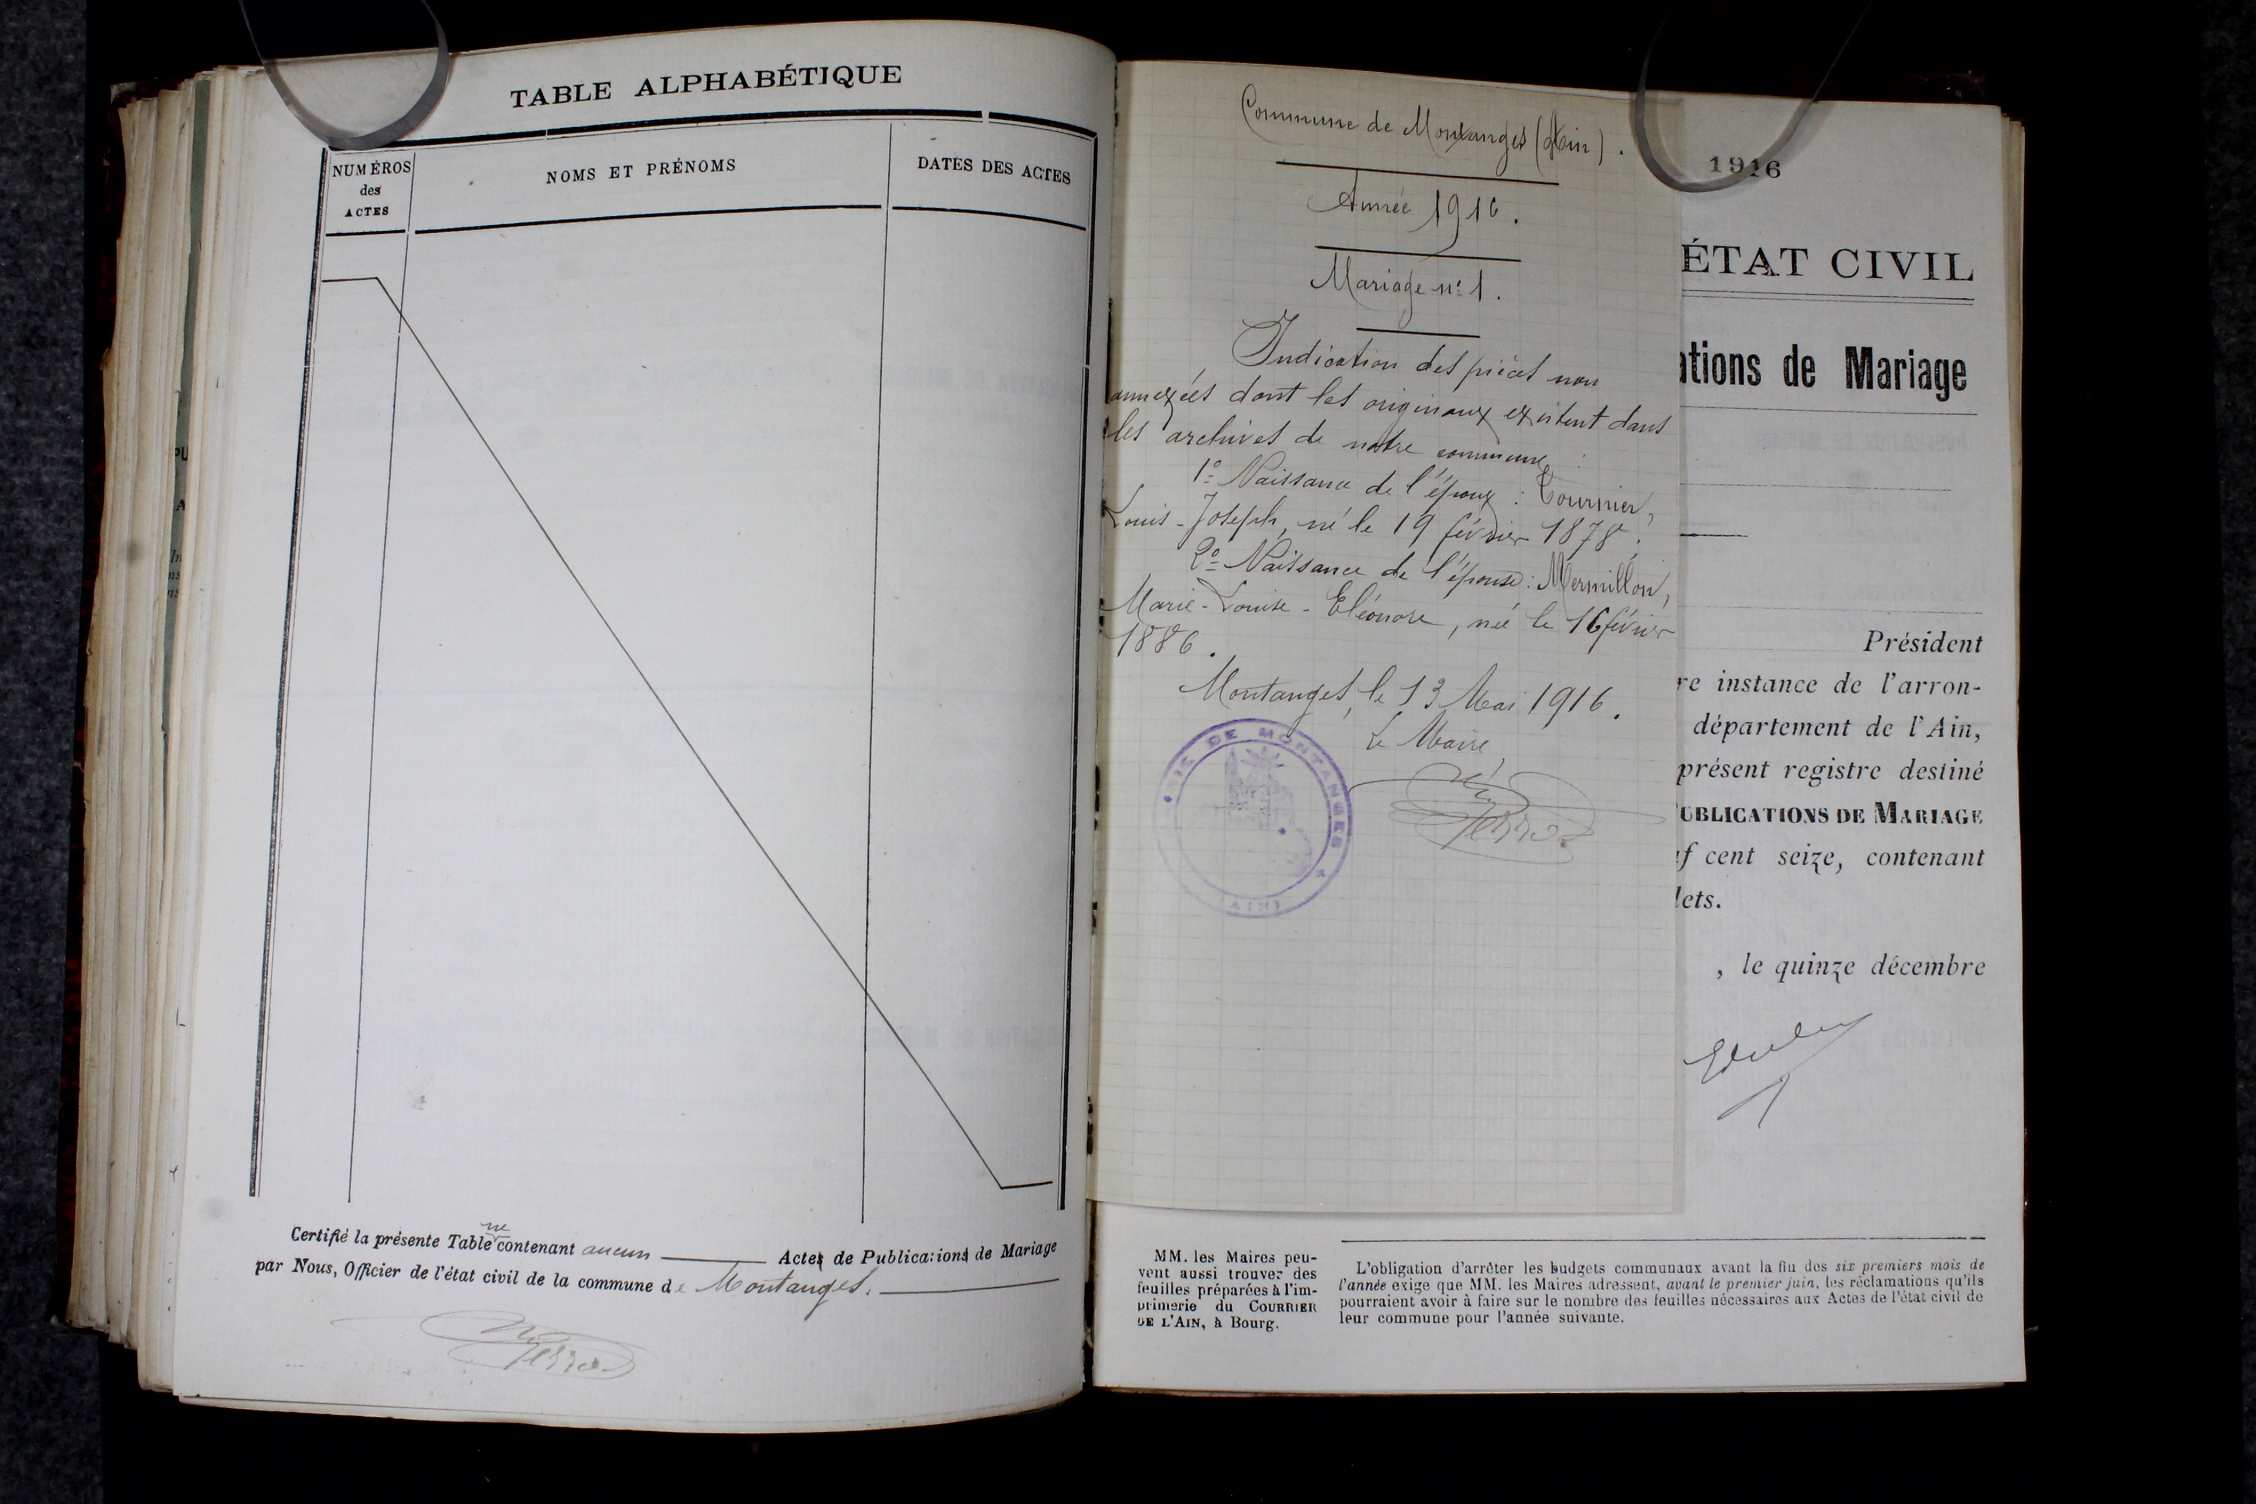 TABLE ALPHABÉTIQUE
NUMÉROS
des
ACTES
NOMS ET PRÉNOMS
DATES DES ACTES
ne
Certifié la présente Table contenant aucun Actes de Publications de Mariage
par Nous, Officier de l'état civil de la commune de Montanges.
Commune de Montanges (Ain).
Année 1916.
Mariage nº 1.
Indication des pièces non
annexées dont les originaux existent dans
les archives de notre commune :
1º Naissance de l'époux : Tournier,
Louis-Joseph, né le 19 février 1878.
2º Naissance de l'épouse : Mermillon,
Marie-Louise-Eléonore, née le 16 février
1886.
Montanges, le 13 Mai 1916.
Le Maire
RIE DE MONTANGES
(AIN)
1916
ÉTAT CIVIL
ations de Mariage
Président
re instance de l'arron-
département de l'Ain,
présent registre destiné
UBLICATIONS DE MARIAGE
uf cent seize, contenant
lets.
, le quinze décembre
MM. les Maires peu-
vent aussi trouver des
feuilles préparées à l'im-
primerie du COURRIER
DE L'AIN, à Bourg.
L'obligation d'arrêter les budgets communaux avant la fin des six premiers mois de
l'année exige que MM. les Maires adressent, avant le premier juin, les réclamations qu'ils
pourraient avoir à faire sur le nombre des feuilles nécessaires aux Actes de l'état civil de
leur commune pour l'année suivante.